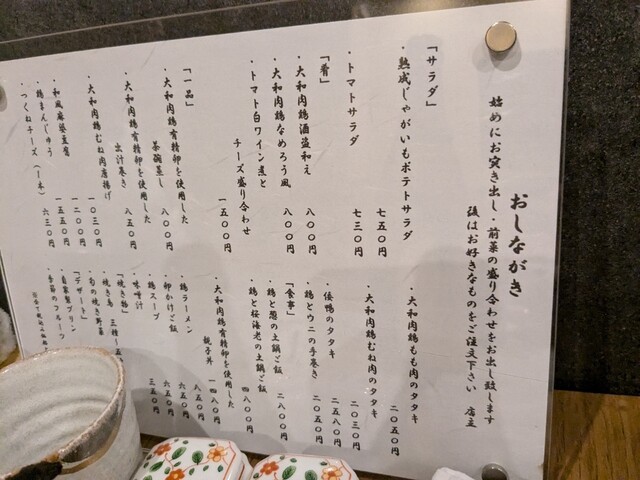 おしながき
始めにお突き出し・前菜の盛り合わせをお出し致します
後はお好きなものをご注文下さい　店主
「サラダ」
・熟成じゃがいもポテトサラダ　七五〇円
・トマトサラダ　七三〇円
「肴」
・大和肉鶏酒盗和え　八〇〇円
・大和肉鶏なめろう風　八〇〇円
・トマト白ワイン煮と
チーズ盛り合わせ　一五〇〇円
「一品」
・大和肉鶏有精卵を使用した
茶碗蒸し　八〇〇円
・大和肉鶏有精卵を使用した
出汁巻き　八五〇円
・大和肉鶏むね肉唐揚げ　一〇三〇円
・和風麻婆豆腐　一二〇〇円
・鶏まんじゅう　一五五〇円
・つくねチーズ（一本）　六三〇円
・大和肉鶏もも肉のタタキ　二〇五〇円
・大和肉鶏むね肉のタタキ　二〇三〇円
・倭鴨のタタキ　二五八〇円
・鶏とウニの手巻き　二〇五〇円
「食事」
・鶏と葱の土鍋ご飯　二八〇〇円
・鶏と桜海老の土鍋ご飯　四八〇〇円
・大和肉鶏有精卵を使用した
親子丼　一四八〇円
・鶏ラーメン　八五〇円
・卵かけご飯　六五〇円
・鶏スープ　六五〇円
・味噌汁　三五〇円
「焼き鶏」
・焼き鳥　三種〜五
・旬の焼き野菜
「デザート」
・自家製プリン
・季節のフルーツ